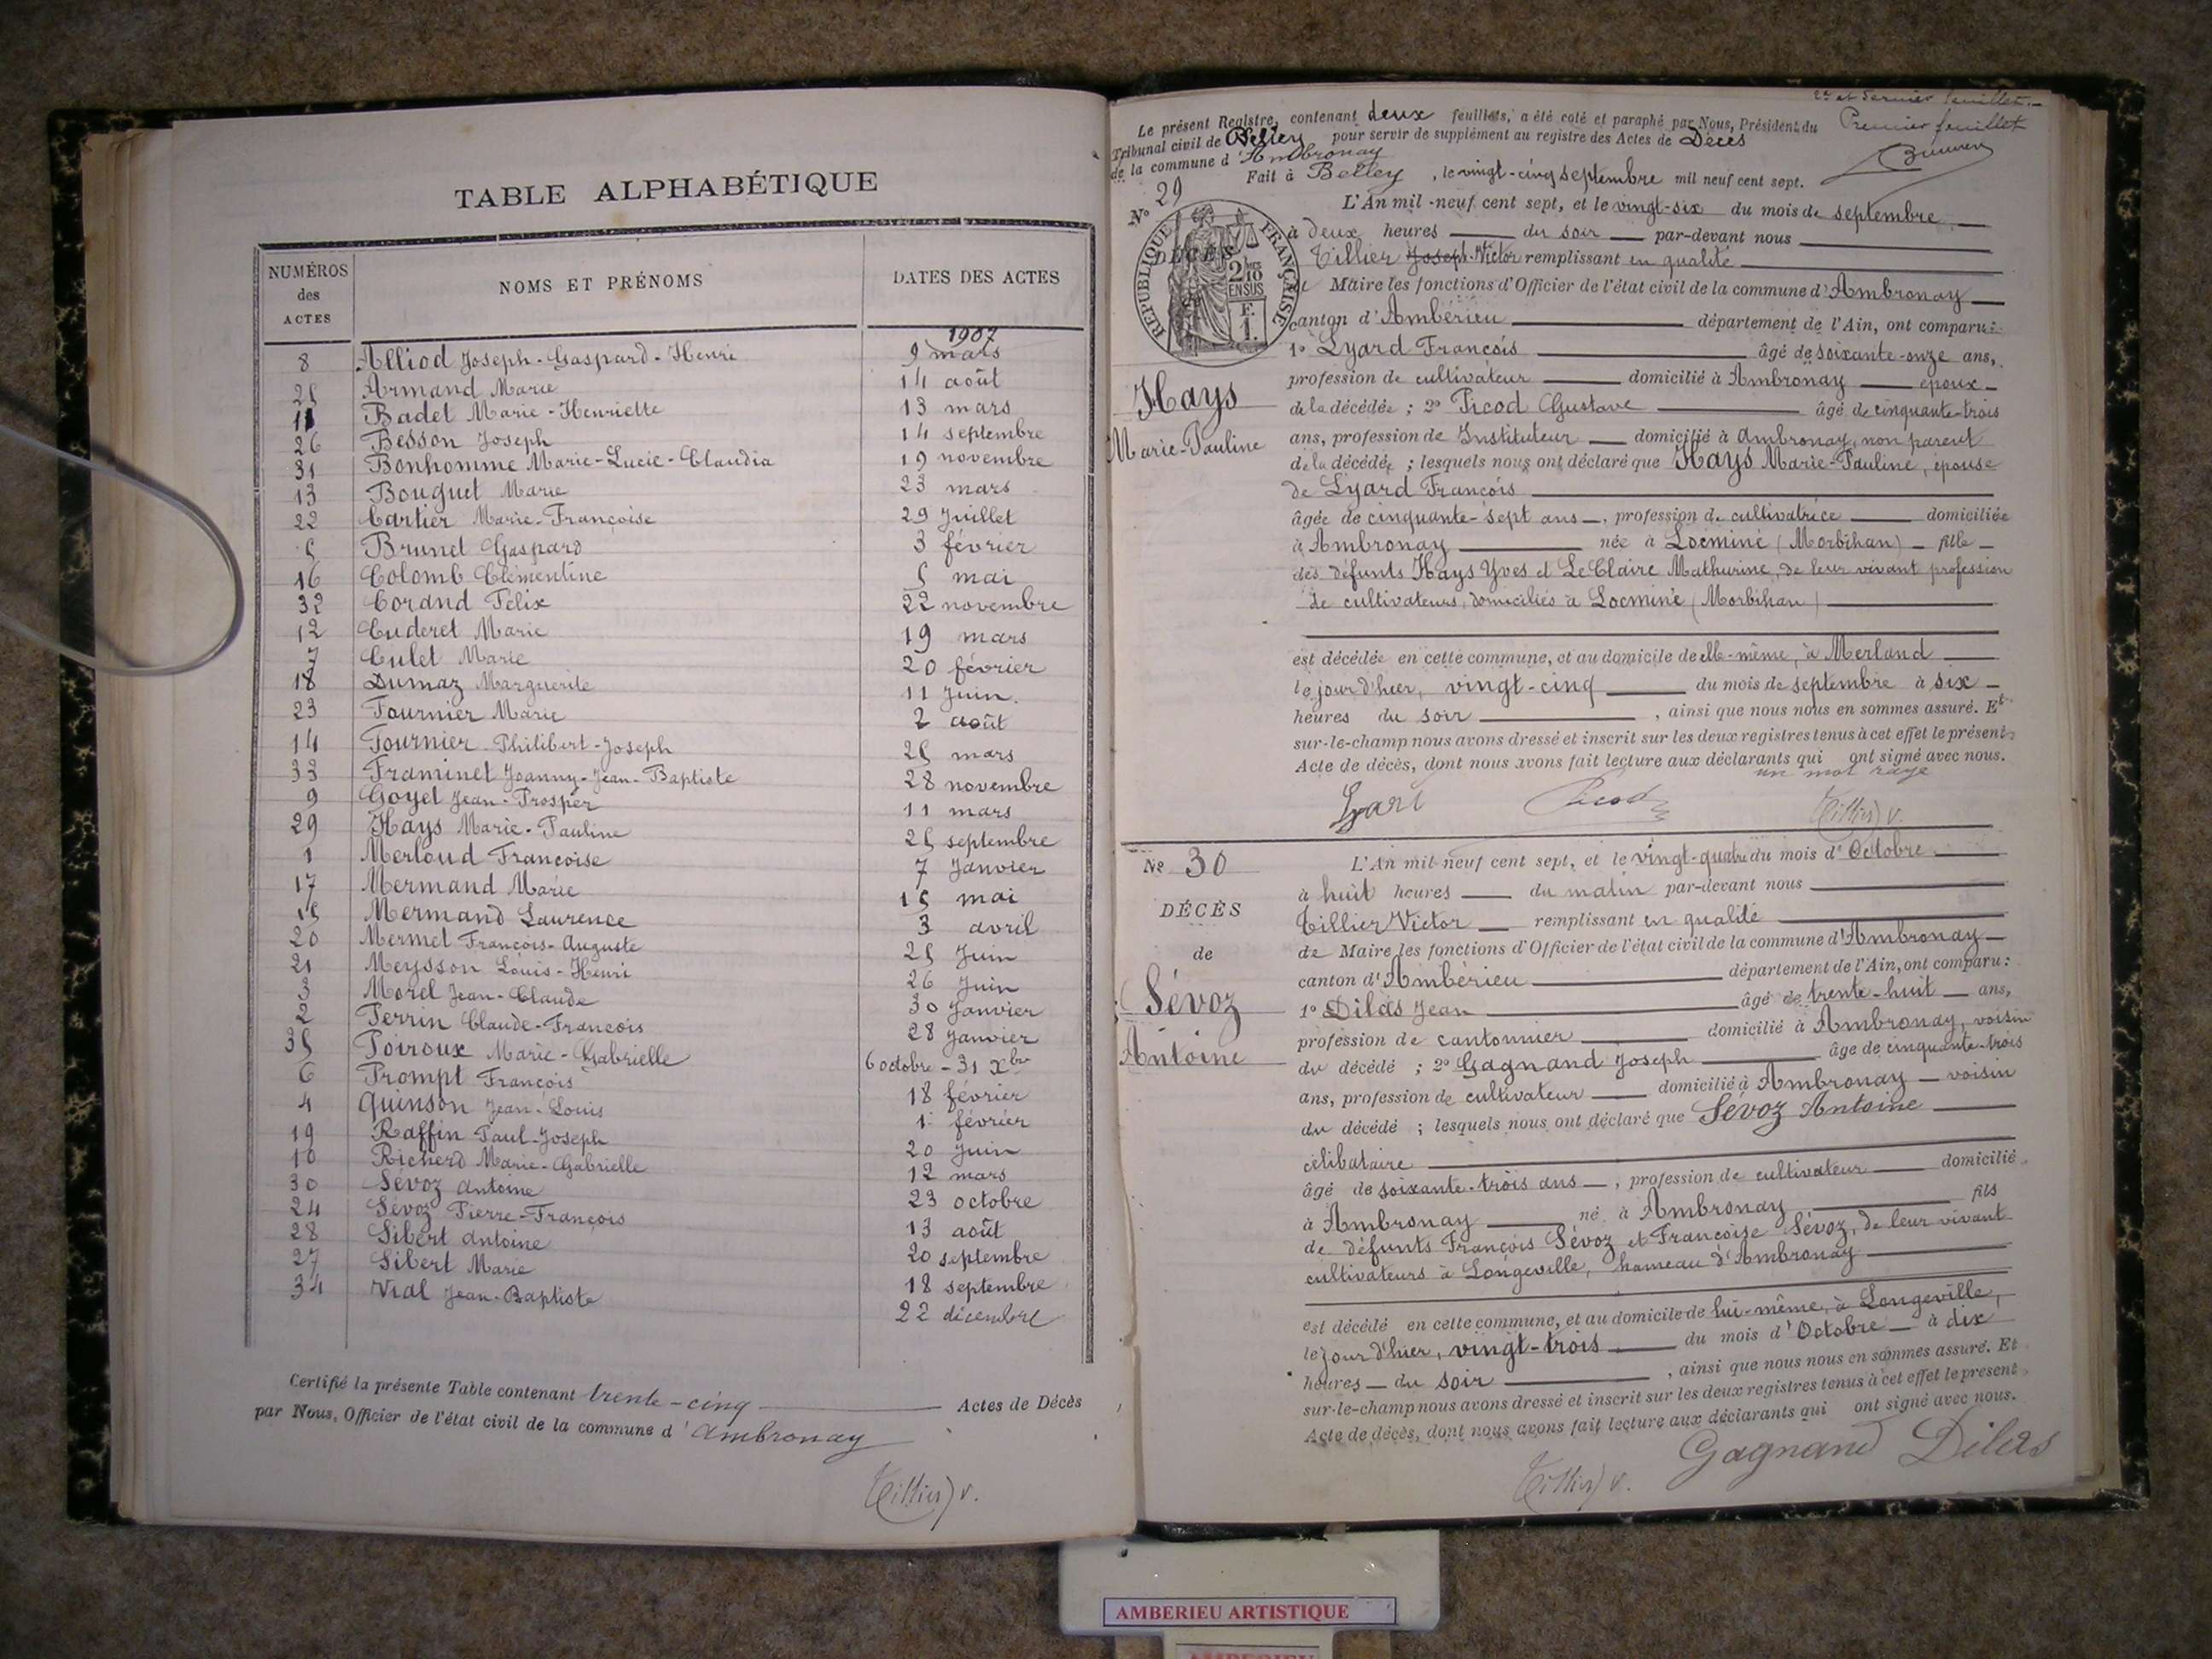 TABLE ALPHABÉTIQUE
NUMÉROS des ACTES NOMS ET PRÉNOMS DATES DES ACTES
1907
8 Alliod Joseph-Gaspard-Henri 9 mars
25 Armand Marie 14 août
11 Badet Marie-Henriette 13 mars
26 Besson Joseph 14 septembre
31 Bonhomme Marie-Lucie-Claudia 19 novembre
13 Bouguet Marie 23 mars
22 Cartier Marie-Françoise 29 Juillet
5 Brunet Gaspard 3 février
16 Colomb Clémentine 5 mai
32 Corand Félix 22 novembre
12 Cuderet Marie 19 mars
7 Culet Marie 20 février
18 Dumaz Marguerite 11 Juin.
23 Fournier Marie 2 août
14 Fournier Philibert-Joseph 25 mars
33 Framinet Joanny-Jean-Baptiste 28 novembre
9 Goyet Jean-Prosper 11 mars
29 Hays Marie-Pauline 25 septembre
1 Merloud Françoise 7 Janvier
17 Mermand Marie 15 mai
15 Mermand Laurence 3 avril
20 Mermet François-Auguste 25 Juin
21 Meysson Louis-Henri 26 Juin
3 Morel Jean-Claude 30 Janvier
2 Perrin Claude-François 28 janvier
35 Poiroux Marie-Gabrielle 6 octobre - 31 Xbre
6 Prompt François 18 février
4 Quinson Jean-Louis 1er février
19 Raffin Paul-Joseph 20 Juin
10 Richerd Marie-Gabrielle 12 mars
30 Sévoz Antoine 23 octobre
24 Sévoz Pierre-François 13 août
28 Sibert Antoine 20 septembre
27 Sibert Marie 18 septembre
34 Vial Jean-Baptiste 22 décembre
Certifié la présente Table contenant trente-cinq Actes de Décès
par Nous, Officier de l'état civil de la commune d'Ambronay
Tillier V.
2e et dernier feuillet.
Le présent Registre, contenant deux feuillets, a été coté et paraphé par Nous, Président du
Premier feuillet
Tribunal civil de Belley pour servir de supplément au registre des Actes de Décès
de la commune d'Ambronay
Fait à Belley, le vingt-cinq septembre mil neuf cent sept.
No 29
DÉCÈS
RÉPUBLIQUE FRANÇAISE
2/10 EN SUS
F. 1.
Hays
Marie-Pauline
L'An mil-neuf cent sept, et le vingt-six du mois de septembre
à deux heures du soir par-devant nous
Tillier Joseph-Victor remplissant en qualité
de Maire les fonctions d'Officier de l'état civil de la commune d'Ambronay
canton d'Ambérieu département de l'Ain, ont comparu:
1o Lyard François âgé de soixante-onze ans,
profession de cultivateur domicilié à Ambronay époux
de la décédée ; 2o Picod Gustave âgé de cinquante-trois
ans, profession de Instituteur domicilié à Ambronay, non parent
de la décédée ; lesquels nous ont déclaré que Hays Marie-Pauline, épouse
de Lyard François
âgée de cinquante-sept ans, profession de cultivatrice domiciliée
à Ambronay née à Locminé (Morbihan) fille
des défunts Hays Yves et Le Claire Mathurine, de leur vivant profession
de cultivateurs, domiciliés à Locminé (Morbihan)
est décédée en cette commune, et au domicile de elle-même, à Merland
le jour d'hier, vingt-cinq du mois de septembre à six
heures du soir, ainsi que nous nous en sommes assuré. Et
sur-le-champ nous avons dressé et inscrit sur les deux registres tenus à cet effet le présent
Acte de décès, dont nous avons fait lecture aux déclarants qui ont signé avec nous.
un mot rayé
Lyard Picod Tillier V.
No 30
DÉCÈS
de
Sévoz
Antoine
L'An mil-neuf cent sept, et le vingt-quatre du mois d'Octobre
à huit heures du matin par-devant nous
Tillier Victor remplissant en qualité
de Maire les fonctions d'Officier de l'état civil de la commune d'Ambronay
canton d'Ambérieu département de l'Ain, ont comparu:
1o Dilas Jean âgé de trente-huit ans,
profession de cantonnier domicilié à Ambronay, voisin
du décédé ; 2o Gagnand Joseph âgé de cinquante-trois
ans, profession de cultivateur domicilié à Ambronay voisin
du décédé ; lesquels nous ont déclaré que Sévoz Antoine
célibataire
âgé de soixante-trois ans, profession de cultivateur domicilié
à Ambronay né à Ambronay fils
de défunts François Sévoz et Françoise Sévoz, de leur vivant
cultivateurs à Longeville, hameau d'Ambronay
est décédé en cette commune, et au domicile de lui-même, à Longeville,
le jour d'hier, vingt-trois du mois d'Octobre à dix
heures du soir, ainsi que nous nous en sommes assuré. Et
sur-le-champ nous avons dressé et inscrit sur les deux registres tenus à cet effet le présent
Acte de décès, dont nous avons fait lecture aux déclarants qui ont signé avec nous.
Tillier V. Gagnand Dilas
AMBERIEU ARTISTIQUE
AMBERIEU